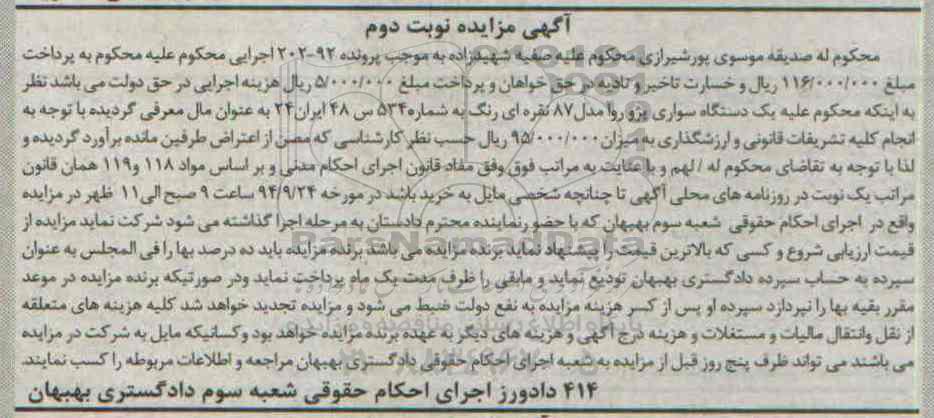 آگهی مزایده نوبت دوم
محکوم له صدیقه موسوی پورشیرازی محکوم علیه صفیه شهیدزاده به موجب پرونده ۹۲-۲۰۲ اجرایی محکوم علیه محکوم به پرداخت
مبلغ ۱۱۶/۰۰۰/۰۰۰ ریال و خسارت تاخیر و تادیه در حق خواهان و پرداخت مبلغ ۵/۰۰۰/۰۰۰ ریال هزینه اجرایی در حق دولت می باشد نظر
به اینکه محکوم علیه یک دستگاه سواری پژو روا مدل ۸۷ نقره ای رنگ به شماره ۵۳۴ س ۴۸ ایران ۲۴ به عنوان مال معرفی گردیده با توجه به
انجام کلیه تشریفات قانونی و ارزشگذاری به میزان ۹۵/۰۰۰/۰۰۰ ریال حسب نظر کارشناسی که مصئن از اعتراض طرفین مانده برآورد گردیده و
لذا با توجه به تقاضای محکوم له / لهم و با عنایت به مراتب فوق وفق مفاد قانون اجرای احکام مدنی و بر اساس مواد ۱۱۸ و۱۱۹ همان قانون
مراتب یک نوبت در روزنامه های محلی آگهی تا چنانچه شخصی مایل به خرید باشد در مورخه ۹۴/۹/۲۴ ساعت ۹ صبح الی ۱۱ ظهر در مزایده
واقع در اجرای احکام حقوقی شعبه سوم بهبهان که با حضور نماینده محترم دادستان به مرحله اجرا گذاشته می شود شرکت نماید مزایده از
قیمت ارزیابی شروع و کسی که بالاترین قیمت را پیشنهاد نماید برنده مزایده می باشد برنده مزایده باید ده درصد بها را فی المجلس به عنوان
سپرده به حساب سپرده دادگستری بهبهان تودیع نماید و مابقی را ظرف مدت یک ماه پرداخت نماید ودر صورتیکه برنده مزایده در موعد
مقرر بقیه بها را نپردازد سپرده او پس از کسر هزینه مزایده به نفع دولت ضبط می شود و مزایده تجدید خواهد شد کلیه هزینه های متعلقه
از نقل وانتقال مالیات و مستغلات و هزینه درج آگهی و هزینه های دیگر به عهده برنده مزایده خواهد بود وکسانیکه مایل به شرکت در مزایده
می باشند می تواند ظرف پنج روز قبل از مزایده به شعبه اجرای احکام حقوقی دادگستری بهبهان مراجعه و اطلاعات مربوطه را کسب نمایند.
۴۱۴ دادورز اجرای احکام حقوقی شعبه سوم دادگستری بهبهان
ParsNamadData